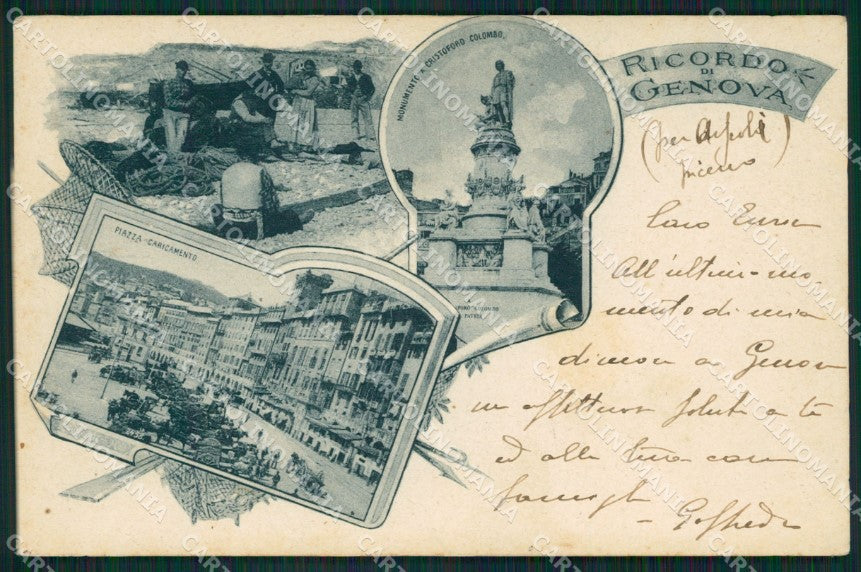 MONUMENTO A CRISTOFORO COLOMBO.
RICORDO
DI
GENOVA
PIAZZA CARICAMENTO
(per Ascoli
piceno)
Caro
All'ultimo mo
mento di mia
dimora a Genova
un affettuoso saluto a te
ed alla tua cara
famiglia
- Goffredo
CARTOLINOMANIA